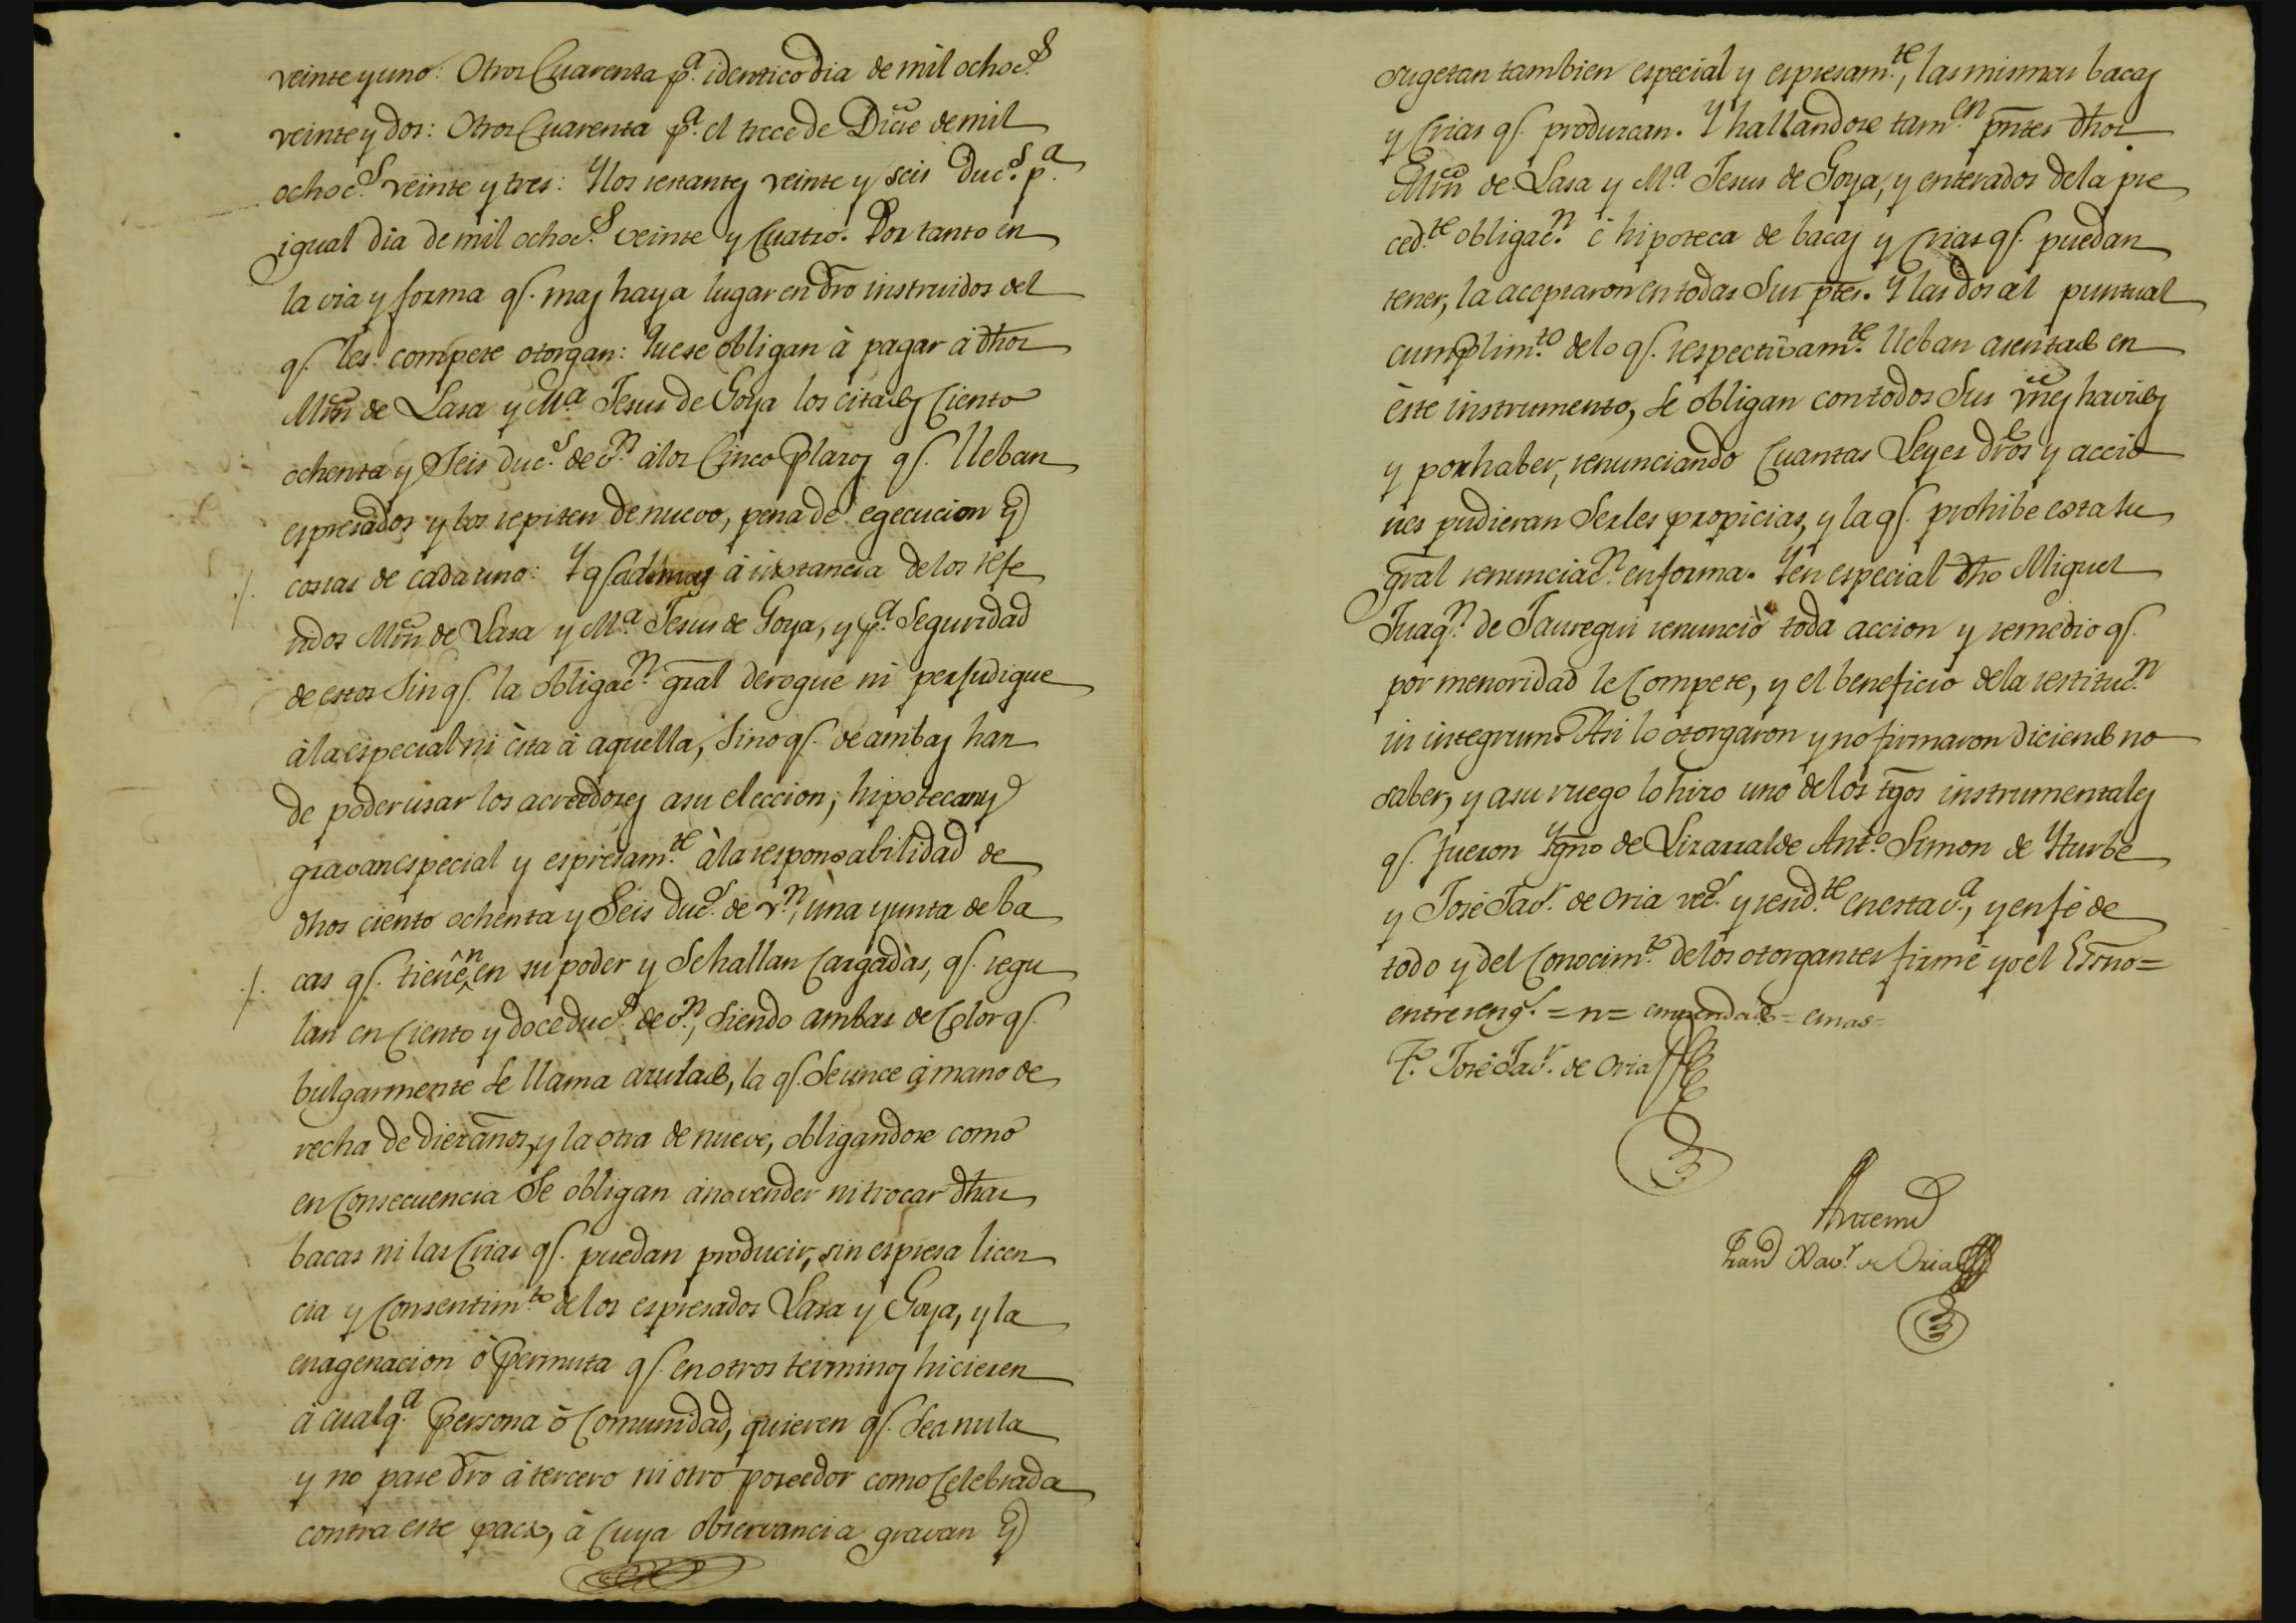 veinte y uno: Otros Cuarenta p.ª identico dia de mil ochoc.s
veinte y dos: Otros Cuarenta p.ª el trece de Dicie de mil
ochoc.s veinte y tres: Y los restantes veinte y seis Duc.s p.ª
igual dia de mil ochoc.s veinte y Cuatro. Por tanto en
la via y forma q.e mas haya lugar en dro instruidos del
q.e les compete otorgan: Que se obligan à pagar à dhos
Mrn de Lasa y M.ª Jesus de Goya los citados Ciento
ochenta y Seis duc.s de v.n à los Cinco Plazos q.e lleban
espresados y los repiten de nuevo, pena de egecucion y
costas de cada uno: Y q.e ademas à instancia de los refe
ridos Mrn de Lasa y M.ª Jesus de Goya, y p.ª Seguridad
de estos Sin q.e la obligac.n gral derogue ni perjudique
à la especial ni èsta à aquella, Sino q.e de ambas han
de poder usar los acreedores a su eleccion, hipotecan y
gravan especial y espresam.te à la responsabilidad de
dhos ciento ochenta y Seis duc.s de v.n, una yunta de ba
cas q.e tienen en su poder y Se hallan Cargadas, q.e regu
lan en Ciento y doce duc.s de v.n, Siendo ambas de Color q.e
bulgarmente Se llama azulado, la q.e Se unce à mano de
recha de diez años, y la otra de nueve, obligandose como
en Consecuencia Se obligan à no vender ni trocar dhas
bacas ni las Crias q.e puedan producir, sin espresa licen
cia y Consentim.to de los espresados Lasa y Goya, y la
enagenacion ò Permuta q.e en otros terminos hicieren
à cualq.ª Persona ò Comunidad, quieren q.e Sea nula
y no pase dro à tercero ni otro poseedor como Celebrada
contra este pacto, à Cuya observancia gravan y
sugetan tambien especial y espresam.te, las mismas bacas
y Crias q.e produzcan. Y hallandose tam.en pntes dhos
Mrn de Lasa y M.ª Jesus de Goya, y enterados de la pre
ced.te obligac.n è hipoteca de bacas y Crias q.e puedan
tener, la aceptaron en todas Sus ptes. Y las dos al puntual
cumplim.to de lo q.e respectivam.te lleban asentado en
èste instrumento, Se obligan con todos Sus vnes havidos
y por haber, renunciando Cuantas Leyes dros y accio
nes pudieran Serles propicias, y la q.e prohibe esta su
gral renunciac.n en forma. Y en especial dho Miguel
Juaq.n de Jauregui renunciò toda accion y remedio q.e
por menoridad le Compete, y el beneficio de la restituc.n
in integrum. Asi lo otorgaron y no firmaron diciendo no
saber, y a su ruego lo hizo uno de los tgos instrumentales
q.e fueron Ygno de Lizarralde Ant.o Simon de Yturbe
y José Jav.r de Oria vec.s y resid.te en esta v.ª, y en fé de
todo y del Conocim.to de los otorgantes firmé yo el Esno=
entre reng.s = n = enmendado = emas =
T.o José Jav.r de Oria
Antemi
Xav.r de Oria